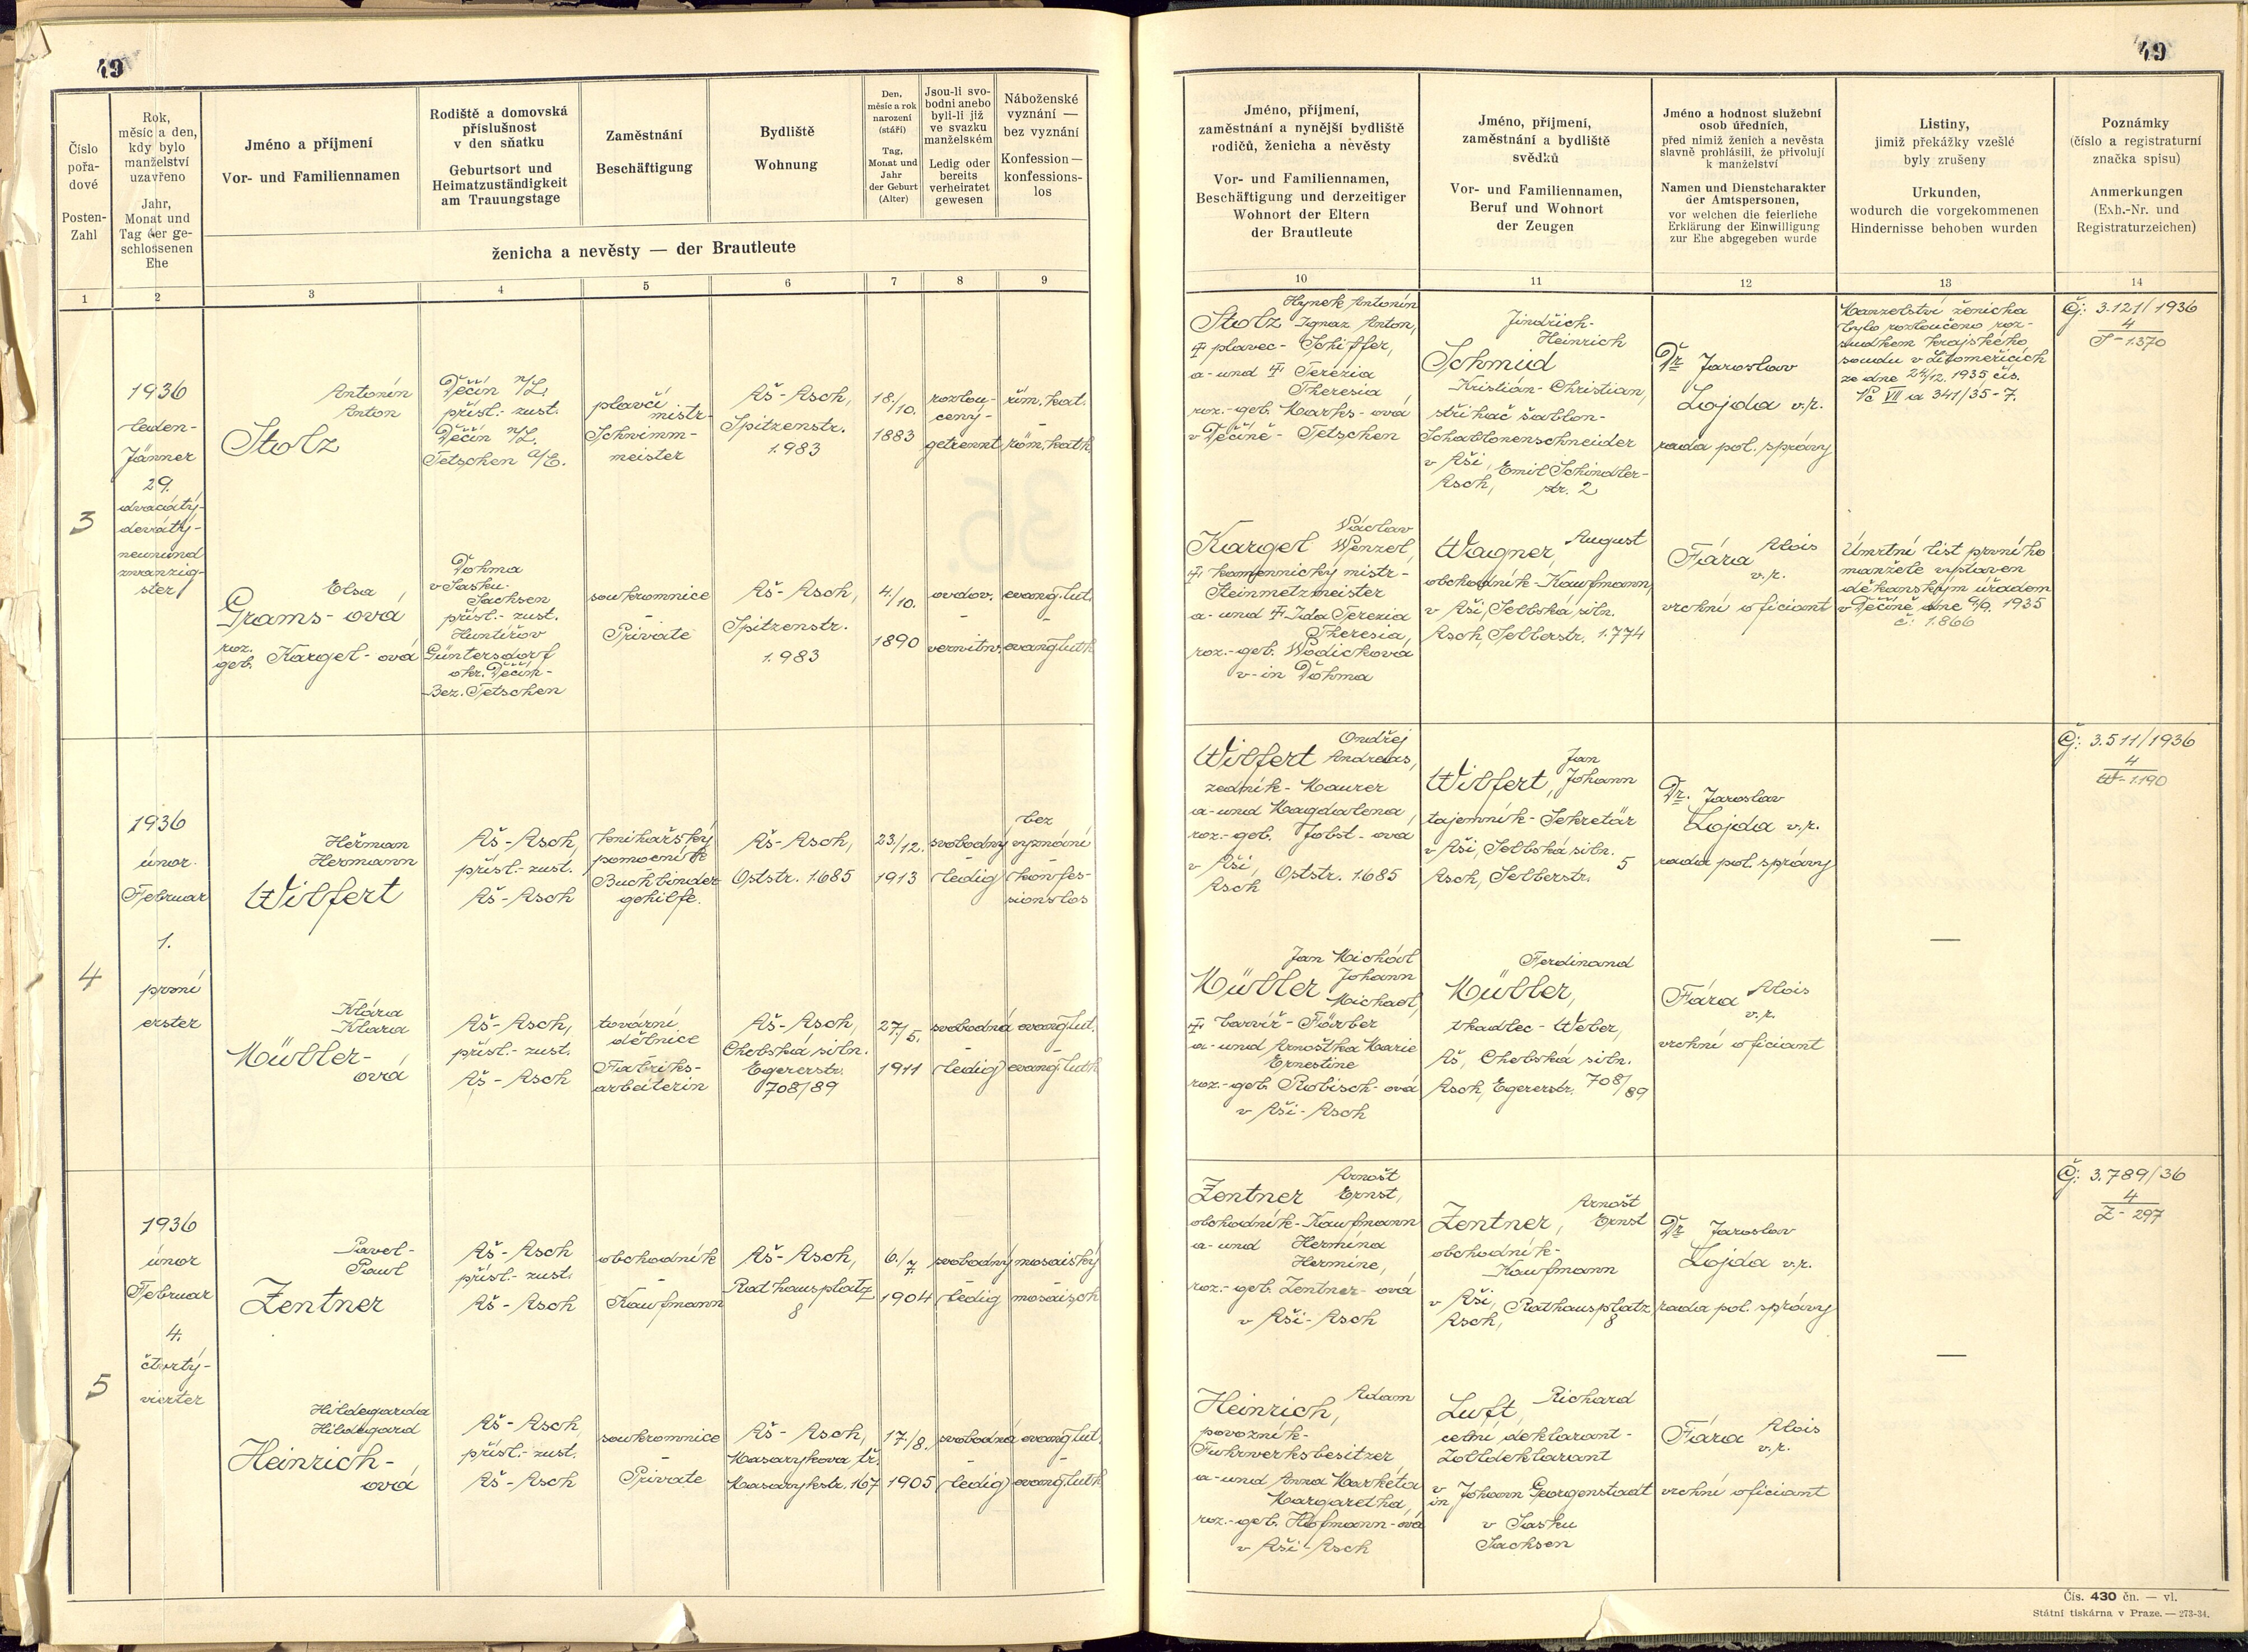 49
49
Číslo
pořa-
dové
Posten-
Zahl
Rok,
měsíc a den,
kdy bylo
manželství
uzavřeno
Jahr,
Monat und
Tag der ge-
schlossenen
Ehe
Jméno a příjmení
Vor- und Familiennamen
Rodiště a domovská
příslušnost
v den sňatku
Geburtsort und
Heimatzuständigkeit
am Trauungstage
Zaměstnání
Beschäftigung
Bydliště
Wohnung
Den,
měsíc a rok
narození
(stáří)
Tag,
Monat und
Jahr
der Geburt
(Alter)
Jsou-li svo-
bodni anebo
byli-li již
ve svazku
manželském
Ledig oder
bereits
verheiratet
gewesen
Náboženské
vyznání —
bez vyznání
Konfession —
konfessions-
los
ženicha a nevěsty — der Brautleute
Jméno, příjmení,
zaměstnání a nynější bydliště
rodičů, ženicha a nevěsty
Vor- und Familiennamen,
Beschäftigung und derzeitiger
Wohnort der Eltern
der Brautleute
Jméno, příjmení,
zaměstnání a bydliště
svědků
Vor- und Familiennamen,
Beruf und Wohnort
der Zeugen
Jméno a hodnost služební
osob úředních,
před nimiž ženich a nevěsta
slavně prohlásili, že přivolují
k manželství
Namen und Dienstcharakter
der Amtspersonen,
vor welchen die feierliche
Erklärung der Einwilligung
zur Ehe abgegeben wurde
Listiny,
jimiž překážky vzešlé
byly zrušeny
Urkunden,
wodurch die vorgekommenen
Hindernisse behoben wurden
Poznámky
(číslo a registraturní
značka spisu)
Anmerkungen
(Exh.-Nr. und
Registraturzeichen)
1 2 3 4 5 6 7 8 9 10 11 12 13 14
3
1936
leden-
Jänner
29.
dvacátý-
devátý-
neunund
zwanzig-
ster
Antonín
Anton
Stolz
Děčín n/L.
přísl.- zust.
Děčín n/L.
Tetschen a/E.
plavčí
mistr-
Schwimm-
meister
Aš-Asch,
Spitzenstr.
1.983
18./10.
1883
rozlou-
čený-
getrennt
řím. kat.
-
röm. kath.
Hynek Antonín
Stolz Ignaz Anton,
† plavec- Schiffer,
a-und † Terezia
Theresia
roz.-geb. Marks-ová
v Děčíně- Tetschen
Jindřich-
Heinrich
Schmid
Kristián-Christian,
střihač šablon-
Schablonenschneider
v Aši, Emil Schindler-
Asch, str. 2
Dr Jaroslav
Lojda v.r.
rada pol. správy
Manželství ženicha
bylo rozloučeno roz-
sudkem krajského
soudu v Litoměřicích
ze dne 24/12. 1935 čís.
Nč VII a 341/35-7.
Čj: 3.121/1936
4
S-1.370
Elsa
Grams-ová
roz.
geb. Kargel-ová
Dohma
v Sasku-
Sachsen
přísl.- zust.
Huntířov
Güntersdorf
okr. Děčín-
Bez. Tetschen
soukromnice
-
Private
Aš-Asch,
Spitzenstr.
1.983
4./10.
1890
ovdov.
-
verwitw.
evang. lut.
-
evang. luth.
Václav
Kargel Wenzel,
† kamennický mistr-
Steinmetzmeister
a-und † Ida Terezia
Theresia,
roz.-geb. Wodicková
v-in Dohma
Wagner August
obchodník-Kaufmann,
v Aši, Selbská siln.
Asch, Selberstr. 1.774
Fára Alois
v.r.
vrchní oficiant
Úmrtní list prvního
manžela vystaven
děkanským úřadem
v Děčíně dne 9/9. 1935
č: 1.866
4
1936
únor-
Februar
1.
první
erster
Heřman
Hermann
Wilfert
Aš-Asch,
přísl.- zust.
Aš-Asch
knihařský
pomocník
Buchbinder-
gehilfe.
Aš-Asch,
Oststr. 1.685
23/12.
1913
svobodný
-
ledig
bez
vyznání
-
konfes-
sionslos
Ondřej
Wilfert Andreas,
zedník- Maurer
a-und Magdalena,
roz.-geb. Jobst-ová
v Aši,
Asch Oststr. 1.685
Wilfert, Jan
Johann
tajemník- Sekretär
v Aši, Selbská siln.
Asch, Selberstr. 5
Dr. Jaroslav
Lojda v.r.
rada pol. správy
—
Čj: 3.511/1936
4
W-1.190
Klára
Klara
Müller-
ová
Aš-Asch,
přísl.- zust.
Aš-Asch
tovární
dělnice
Fabriks-
arbeiterin
Aš-Asch,
Chebská siln.
Egererstr.
708/89
27/5.
1911
svobodná
-
ledig
evang. lut.
-
evang. luth
Jan Michael
Müller Johann
Michael,
† barvíř-Färber
a-und Arnoštka Marie
Ernestine
roz.-geb. Robisch-ová
v Aši-Asch
Ferdinand
Müller,
tkadlec- Weber,
Aš, Chebská siln.
Asch, Egererstr. 708/89
Fára Alois
v.r.
vrchní oficiant
5
1936
únor
Februar
4.
čtvrtý-
vierter
Pavel-
Paul
Zentner
Aš-Asch
přísl.- zust.
Aš-Asch
obchodník
-
Kaufmann
Aš-Asch,
Rathausplatz
8
6./7.
1904
svobodný
-
ledig
mosaiský
-
mosaisch
Arnošt
Zentner Ernst,
obchodník-Kaufmann
a-und Hermína
Hermine,
roz.-geb. Zentner-ová
v Aši-Asch
Arnošt
Zentner, Ernst
obchodník-
Kaufmann
v Aši, Rathausplatz
Asch, 8
Dr Jaroslav
Lojda v.r.
rada pol. správy
—
Čj: 3.789/36
4
Z-297
Hildegarda
Hildegard
Heinrich-
ová
Aš-Asch,
přísl.- zust.
Aš-Asch
soukromnice
-
Private
Aš-Asch,
Masarykova tř.
Masarykstr. 167
17./8.
1905
svobodná
-
ledig
evang. lut.
-
evang. luth
Adam
Heinrich,
povozník-
Fuhrwerksbesitzer
a-und Anna Markéta
Margaretha,
roz.-geb. Hofmann-ová
v Aši-Asch
Luft, Richard
celní deklarant-
Zolldeklarant
v
in Johann Georgenstadt
v Sasku
Sachsen
Fára Alois
v.r.
vrchní oficiant
Čís. 430 čn. — vl.
Státní tiskárna v Praze. — 273-34.